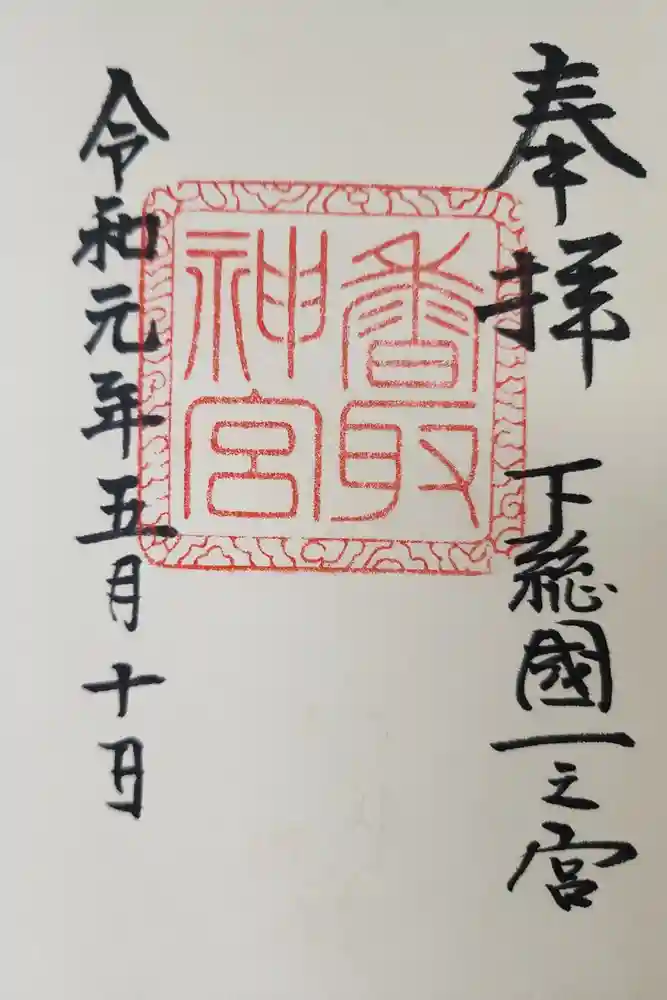 奉拝
下総國一之宮
香取
神宮
令和元年五月十日